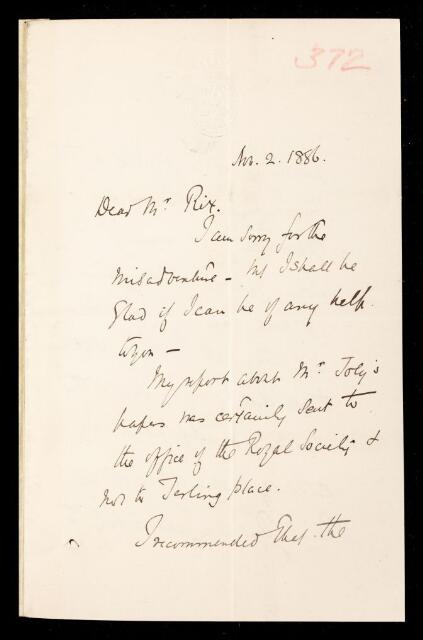 372
Nov. 2. 1886.
Dear Mr Rix.
I am sorry for the
misadventure – I shall be
glad if I can be of any help
to you –
My report about Mr Joly's
papers was certainly sent to
the office of the Royal Society &
not to Terling place.
I recommended that the